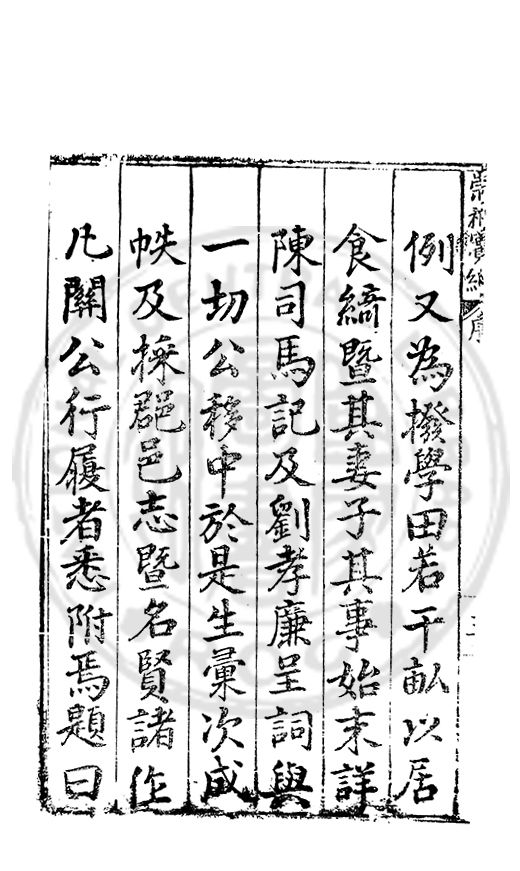 例又為撥學田若干畆以居
食縞暨其妻子其事始末詳
陳司馬記及劉孝廉呈詞與
一切公移中於是生彙次成
帙及採郡邑志暨名賢諸作
凡關公行履者悉附焉題曰